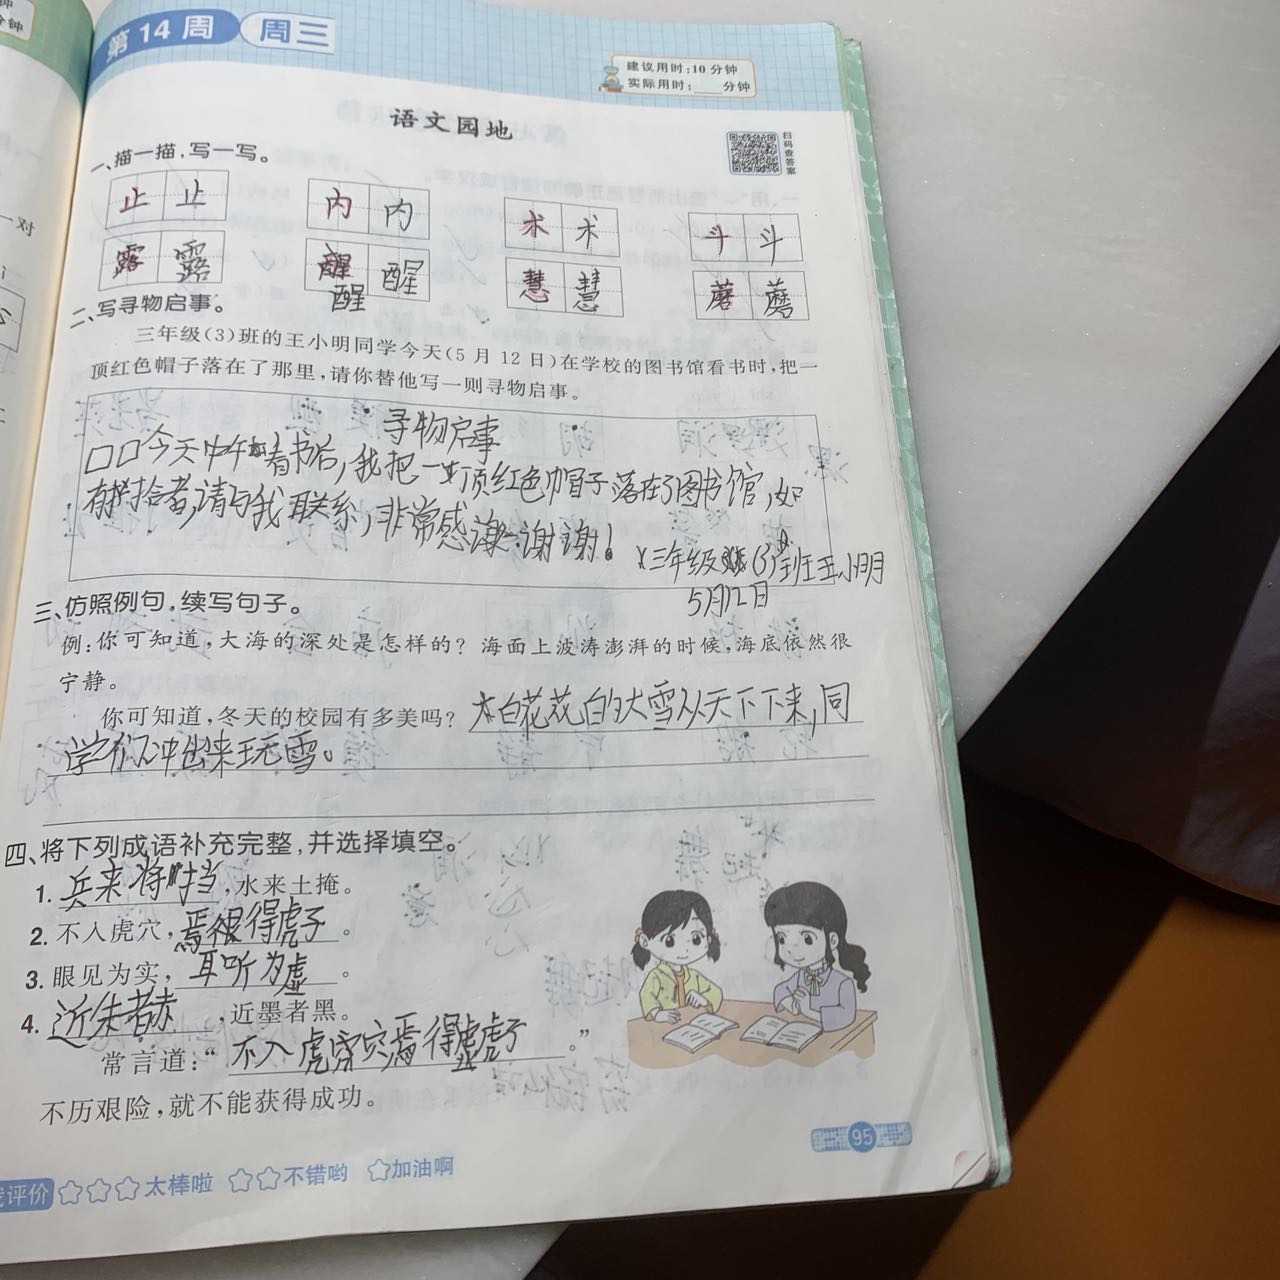 钟
分钟
第14周 周三
建议用时:10分钟
实际用时:____分钟
语文园地
扫码查答案
一、描一描,写一写。
止 止 内 内 术 术 斗 斗
露 露 醒 醒 慧 慧 蘑 蘑
醒
二、写寻物启事。
三年级(3)班的王小明同学今天(5月12日)在学校的图书馆看书时,把一
顶红色帽子落在了那里,请你替他写一则寻物启事。
寻物启事
口口今天中午看书后,我把一顶红色帽子落在了图书馆,如
有拾者,请与我联系,非常感谢谢谢!
三年级(3)班王小明
5月12日
三、仿照例句,续写句子。
例:你可知道,大海的深处是怎样的?海面上波涛澎湃的时候,海底依然很
宁静。
你可知道,冬天的校园有多美吗?白花花的大雪从天下下来,同
学们冲出来玩雪。
四、将下列成语补充完整,并选择填空。
1. 兵来将挡,水来土掩。
2. 不入虎穴,焉得虎子。
3. 眼见为实,耳听为虚。
4. 近朱者赤,近墨者黑。
常言道:“不入虎穴焉得虎子。”
不历艰险,就不能获得成功。
95
我评价 ☆☆☆太棒啦 ☆☆不错哟 ☆加油啊